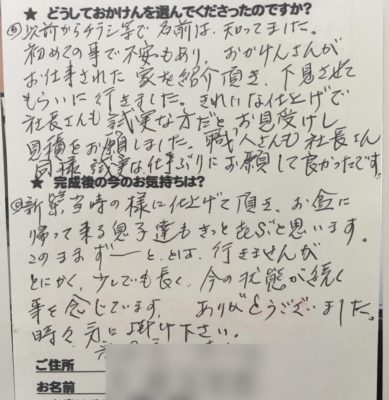 ★ どうしておかけんを選んでくださったのですか?
◎以前からチラシ等で名前は、知ってました。
初めての事で不安もあり、おかけんさんが
お仕事された家を紹介頂き、下見させて
もらいに行きました。きれいな仕上げで
社長さんも誠実な方だとお見受けし
見積をお願しました。職人さんも社長さん
同様誠実な仕事ぶりにお願して良かったです。
★ 完成後の今のお気持ちは?
◎新築当時の様に仕上げて頂き、お盆に
帰って来る息子達もきっと喜ぶと思います。
このままずーっと、とは、行きませんが
とにかく、少しでも長く、今の状態が続く
事を念じています。 ありがとうございました。
時々気に掛け下さい。
ご住所
お名前